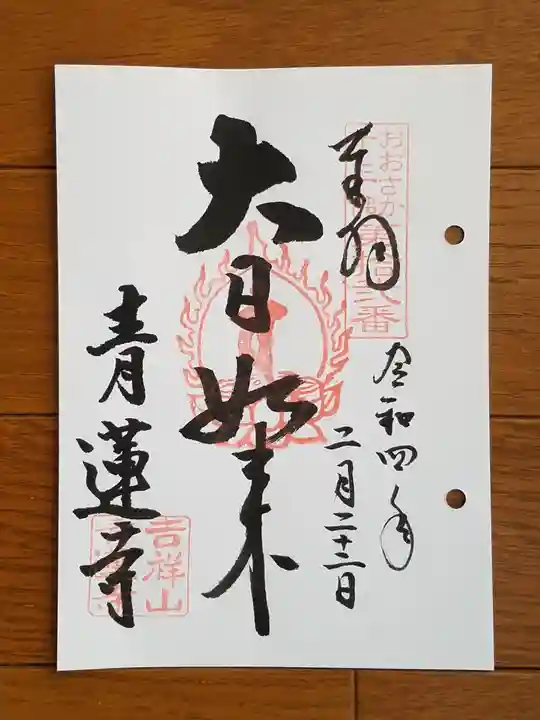 奉拝
おおさか
十三佛
第拾弐番
令和四年
二月二十二日
大日如来
青蓮寺
吉祥山